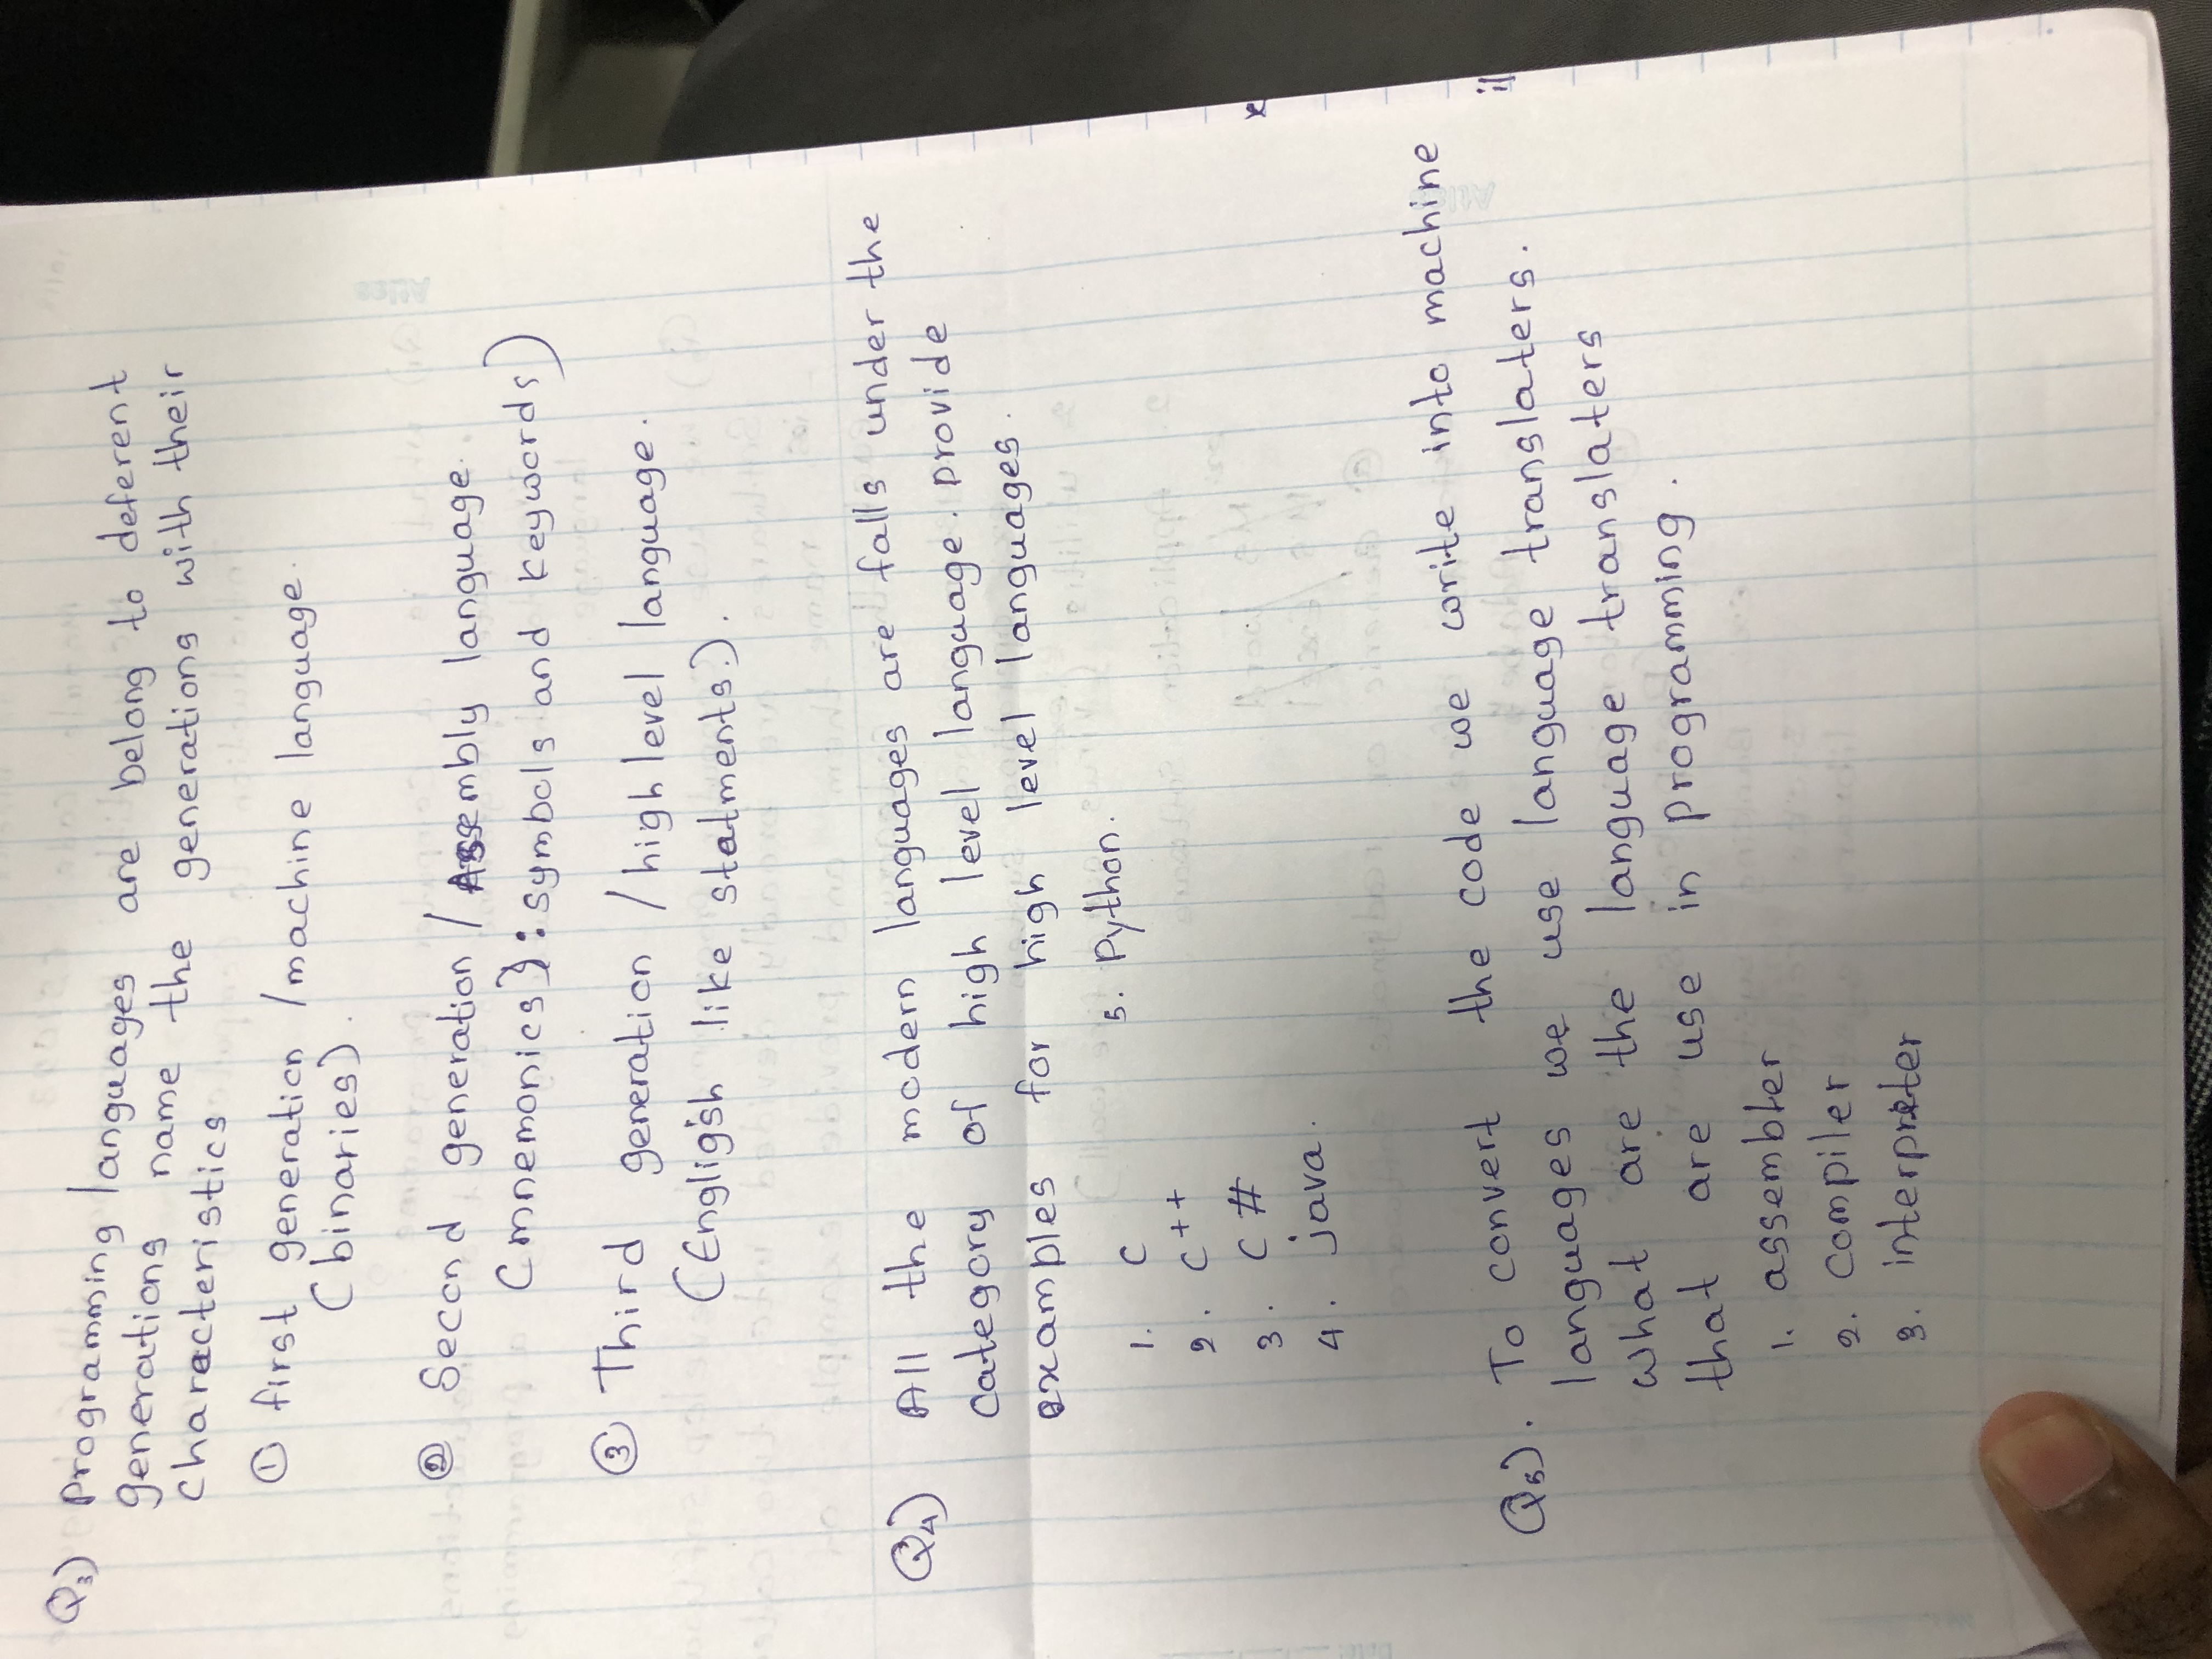 Q3) Programming languages are belong to deferent
generations name the generations with their
charecteristics
① first generation /machine language.
(binaries).
② Second generation /Assembly language.
(mnemonics): symbols and keywords)
③ Third generation /high level language.
(Engligsh like statments.).
Q4) All the modern languages are falls under the
category of high level language. provide
examples for high level languages.
1. C 5. Python.
2. C++
3. C#
4. java.
Q5). To convert the code we write into machine
languages we use language translaters.
what are the language translaters
that are use in programming.
1. assembler
2. compiler
3. interpreter